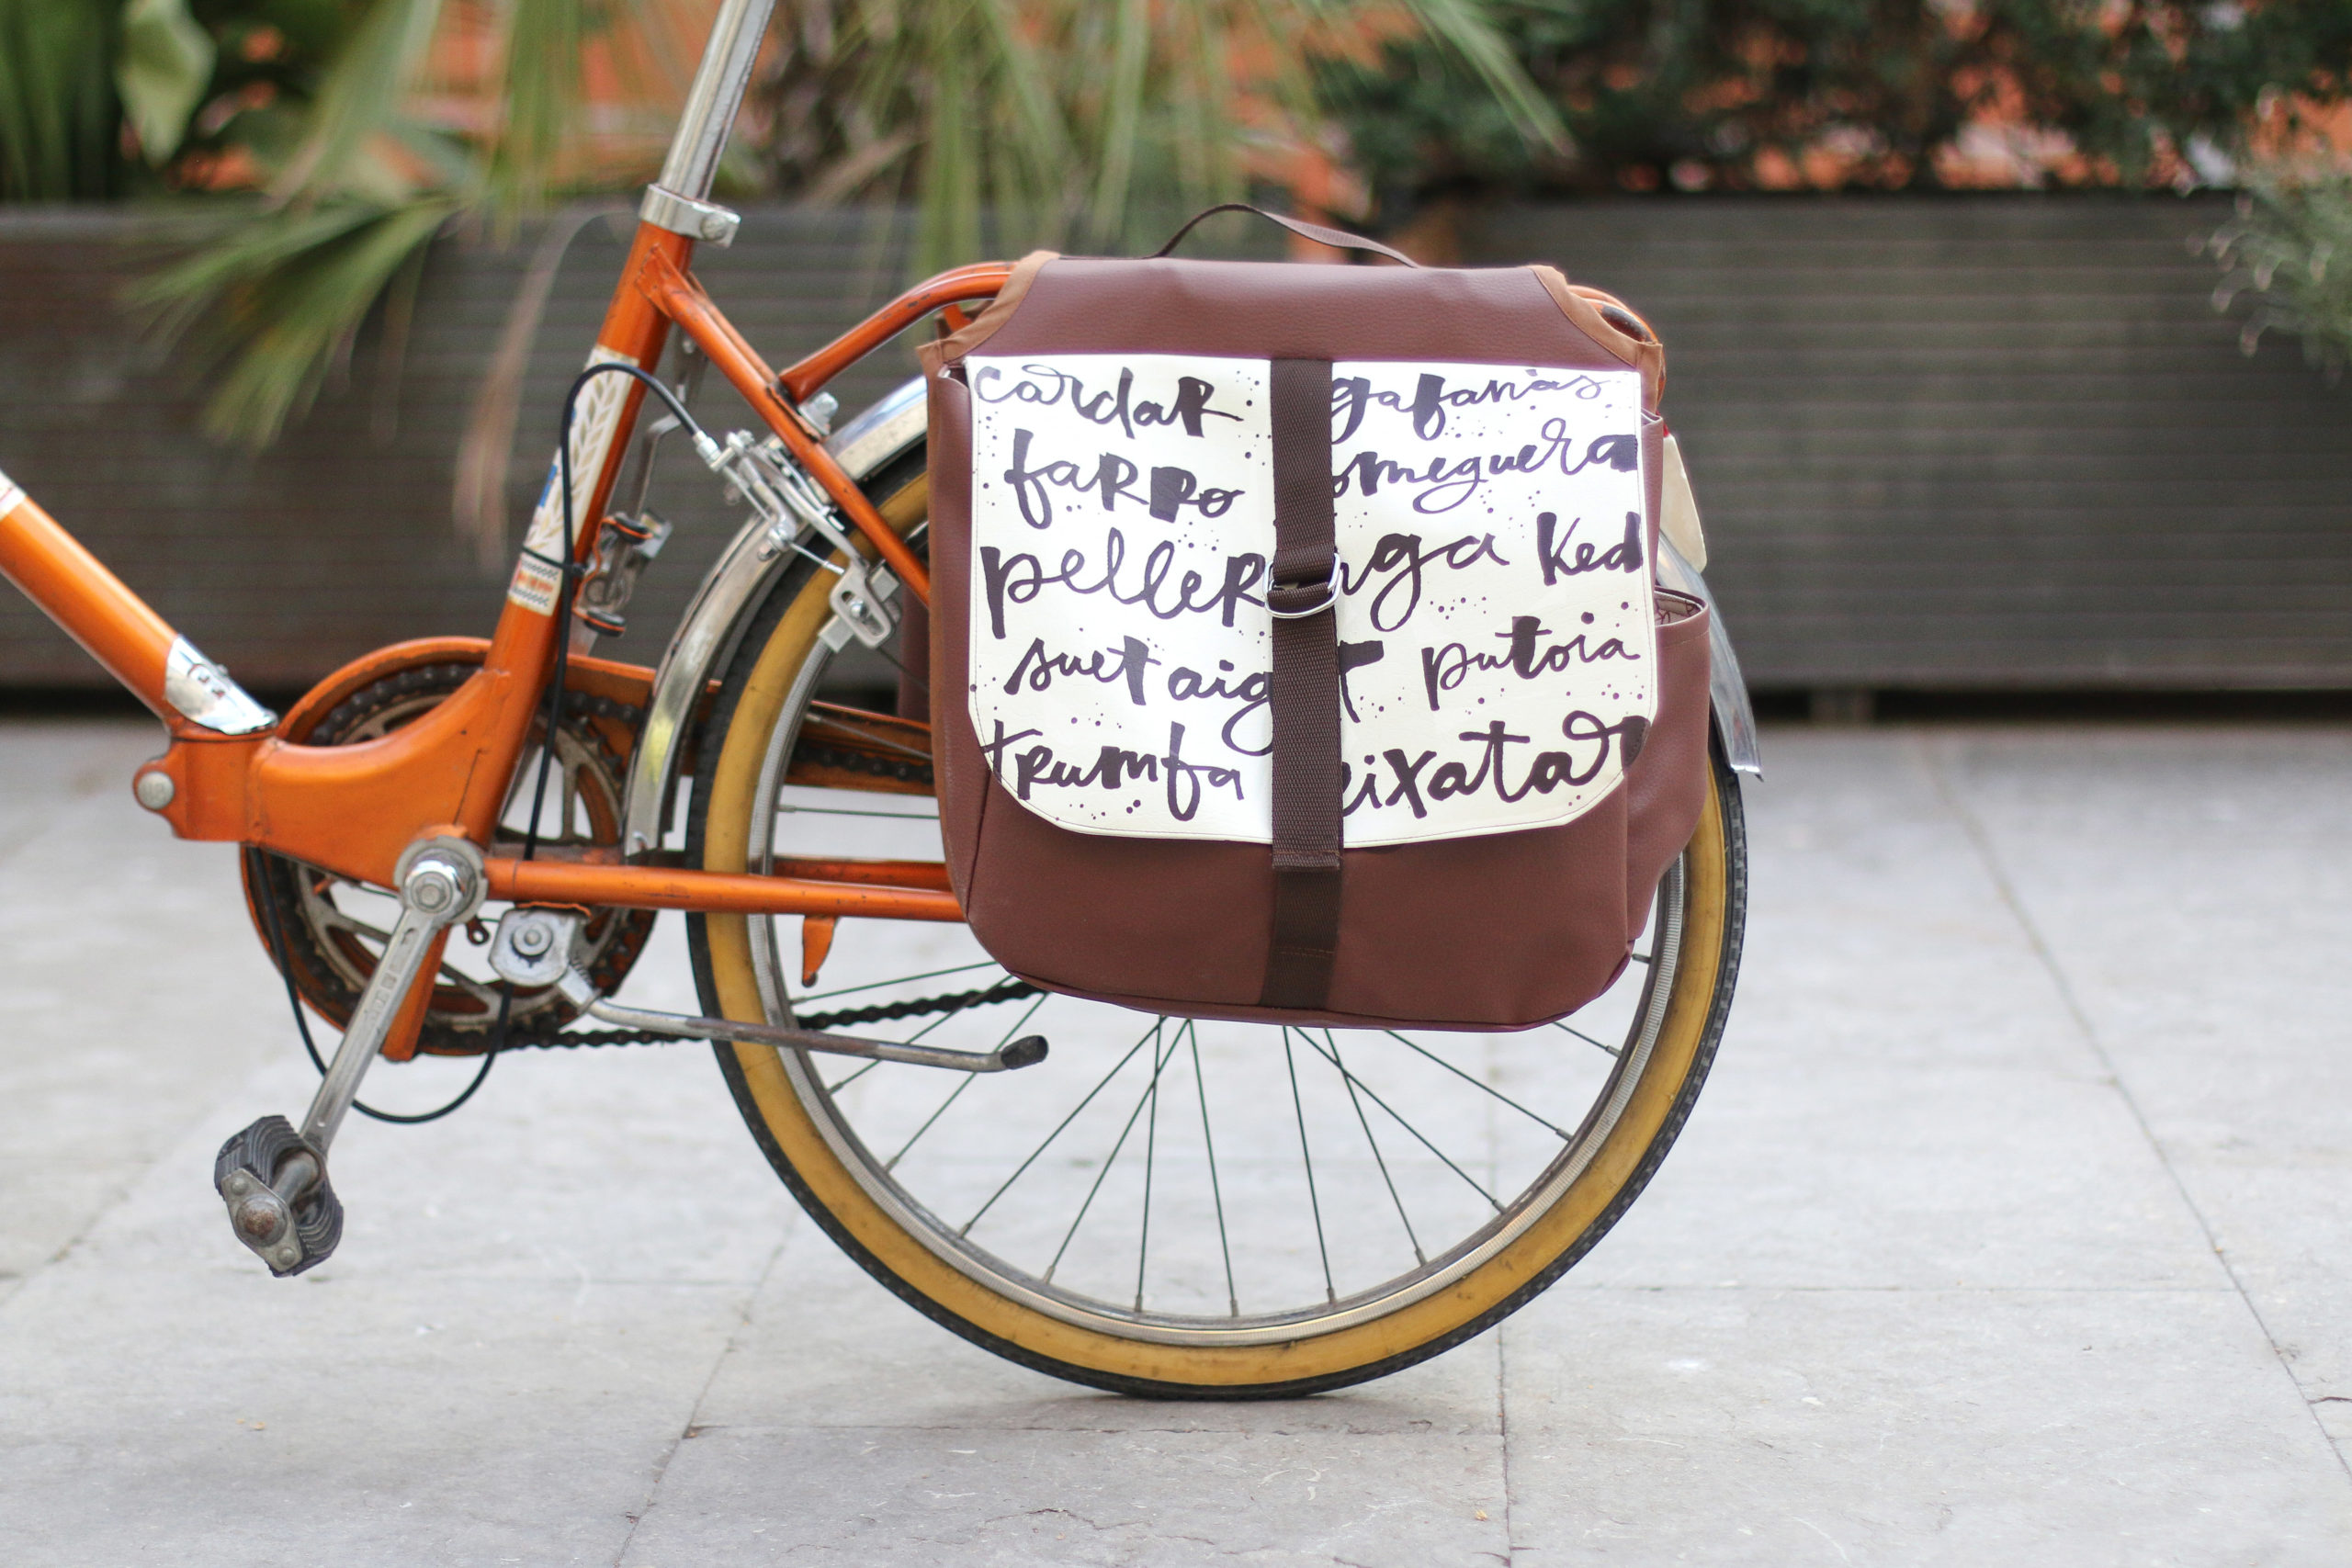 cordar gafanas
farro omeguera
pelleringa Ked
suet aigt putoia
trumfa eixatar